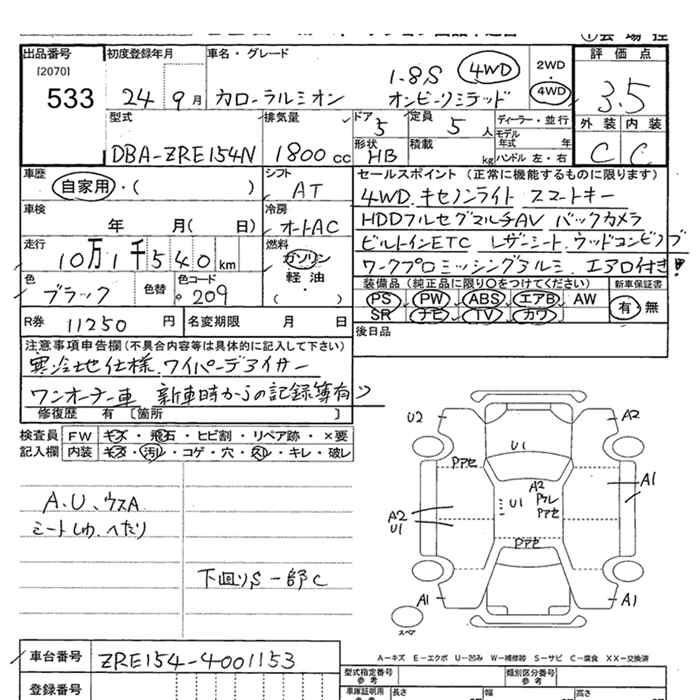 ①会場控
出品番号 初度登録年月 車名・グレード 評価点
[2070]
533
24年 9月 カローラルミオン 1.8S 4WD オンビーリミテッド 2WD・4WD 3.5
型式 排気量 ドア 定員 ディーラー・並行 外装 内装
DBA-ZRE154N 1800cc 5 5人 モデル年式 年 C C
形状 積載 ハンドル 左・右
HB kg
車歴 シフト セールスポイント(正常に機能するものに限ります)
自家用・( ) AT 4WD. キセノンライト スマートキー
車検 冷房 HDDフルセグマルチAV バックカメラ
年 月( 日) オートAC ビルトインETC レザーシート. ウッドコンビ
走行 燃料
10万1千540km ガソリン エアロ付き!
軽油・
( )
色 色替 色コード 装備品(純正品に限り○をつけてください) 新車保証書
ブラック 209 PS PW ABS エアB AW 有・無
SR ナビ TV カワ
R券 11250円 名変期限 月 日 後日品
注意事項申告欄(不具合内容等は具体的に記入して下さい)
寒冷地仕様. ワイパーデアイサー
ワンオーナー車 新車時からの記録簿有り
修復歴 有 [箇所 ]
検査員 FW キズ・飛石・ヒビ割・リペア跡・×要
記入欄 内装 キズ・汚レ・コゲ・穴・スレ・キレ・破レ
A.U、ウスA
シートしわ、へたり
下回りS 一部C
U2 A2
U1
Pアセ
A2 A1
U1 Pクレ
Pアセ
A2
U1
Pアセ
A1 A1
スペア
A-キズ E-エクボ U-凹み W-補修跡 S-サビ C-腐食 XX-交換済
車台番号 ZRE154-4001153
型式指定番号 参考 類別区分番号 参考
登録番号 車庫証明用 長さ 幅 高さ